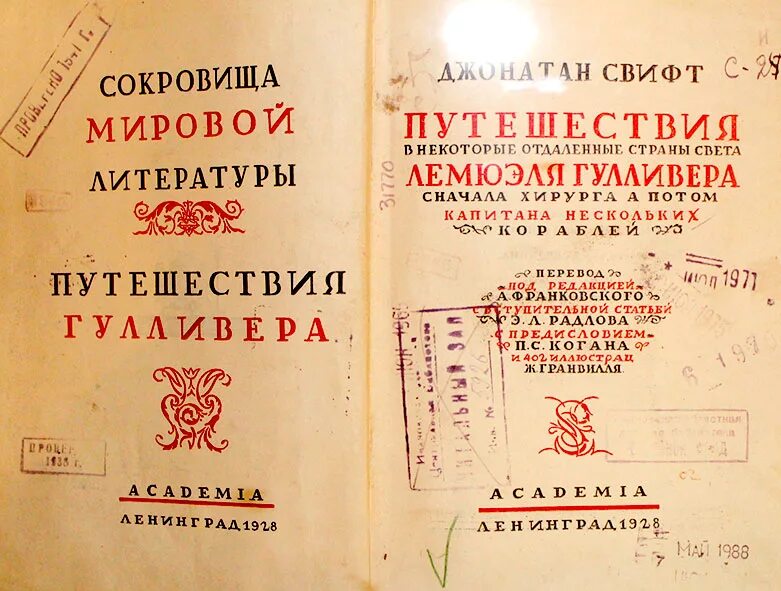 ПРОВЕРЕНО 1941 г.
СОКРОВИЩА
МИРОВОЙ
ЛИТЕРАТУРЫ
ПУТЕШЕСТВИЯ
ГУЛЛИВЕРА
1935 г.
ACADEMIA
ЛЕНИНГРАД 1928
ДЖОНАТАН СВИФТ
ПУТЕШЕСТВИЯ
В НЕКОТОРЫЕ ОТДАЛЕННЫЕ СТРАНЫ СВЕТА
ЛЕМЮЭЛЯ ГУЛЛИВЕРА
СНАЧАЛА ХИРУРГА А ПОТОМ
КАПИТАНА НЕСКОЛЬКИХ
КОРАБЛЕЙ
31770
ПЕРЕВОД
ПОД РЕДАКЦИЕЙ
А. ФРАНКОВСКОГО
СО ВСТУПИТЕЛЬНОЙ СТАТЬЕЙ
Э. Л. РАДЛОВА
С ПРЕДИСЛОВИЕМ
П. С. КОГАНА
И 402 ИЛЛЮСТРАЦ
Ж. ГРАНВИЛЛЯ
ИЮЛ 1977
Центральная Библиотека
ЧИТАЛЬНЫЙ ЗАЛ
ACADEMIA
ЛЕНИНГРАД, 1928
МАЙ 1988